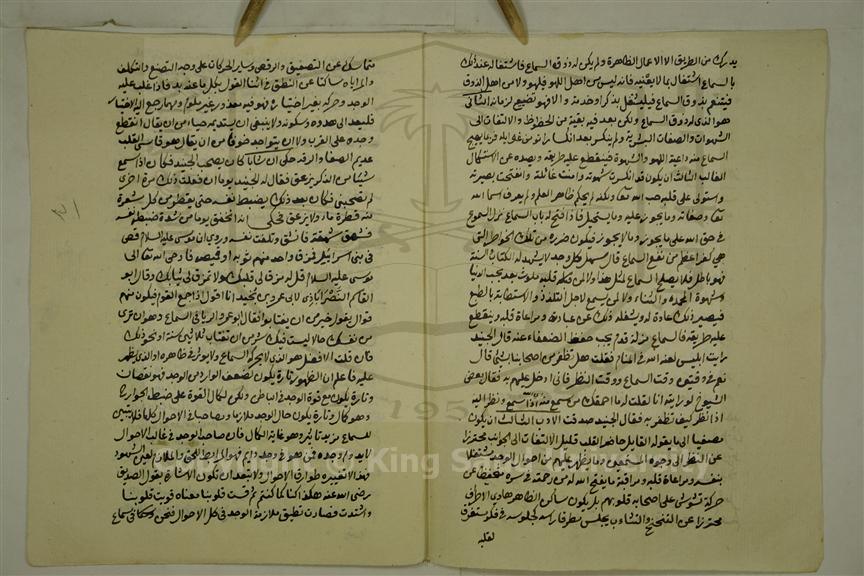 يدرك من الطريق الا الاعمال الظاهرة ولم يكن له ذوق السماع فاشتغاله عند ذلك
بالسماع اشتغال بما لا يعنيه فانه ليس من اهل اللهو فيلهو ولا من اهل الذوق
فيتنعم بذوق السماع فليشتغل بذكر او خدمة والا فهو تضييع لزمانه الثاني
هو الذي له ذوق السماع ولكن بعد فيه بقية من الحظوظ والالتفات الى
الشهوات والصفات البشرية ولم ينكسر بعد انكسارا تؤمن غوايله فربما يهيج
السماع منه داعية اللهو والشهوة فينقطع عليه طريقه ويصده عن الاستكمال
الثالث ان يكون قد انكسرت شهوته وامنت غائلته وانفتحت بصيرته
واستولى على قلبه حب الله تعالى ولكنه لم يحكم ظاهر العلم ولم يعرف اسماء الله
تعالى وصفاته وما يجوز عليه وما يستحيل فاذا فتح له باب السماع نزل المسموع
في حق الله على ما يجوز وما لا يجوز فيكون ضرره من تلك الخواطر التي
هي كفر اعظم من نفع السماع قال سهل كل وجد لا يشهد له الكتاب والسنة
فهو باطل فلا يصلح السماع لمثل هذا ولا لمن قلبه ملوث بعد بحب الدنيا
وشهوة المحمدة والثناء ولا لمن يسمع لاجل التلذذ والاستطابة بالطبع
فيصير ذلك عادة له ويشغله ذلك عن عبادته ومراعاة قلبه وينقطع
عليه طريقه فالسماع مزلة قدم يجب حفظ الضعفاء عنه قال الجنيد
رايت ابليس لعنه الله في المنام فقلت هل تظفر من اصحابنا بشئ قال
نعم في وقتين وقت السماع ووقت النظر فاني ادخل عليهم به فقال بعض
الشيوخ لو رايته انا لقلت له ما احمقك من سمع منه اذا سمع ونظر اليه
اذا نظر كيف تظفر به فقال الجنيد صدقت الادب الثالث ان يكون
مصغيا الى ما يقوله القايل حاضر القلب قليل الالتفات الى الجوانب محترزا
عن النظر الى وجوه المستمعين وما يظهر عليهم من احوال الوجد مشتغلا
بنفسه ومراعاة قلبه ومراقبة ما يفتح الله له من رحمته في سره متحفظا عن
حركة تشوش على اصحابه قلوبهم بل يكون ساكن الظاهر هادي الاطراف
محترزا عن التنحنح والتثاؤب يجلس مطرقا راسه كجلوسه في فكر مستغرق
لقلبه
متماسك عن التصفيق والرقص وساير الحركات على وجه التصنع والتكلف
والمراياة ساكتا عن النطق في اثناء القول بكل ما عنه بد فاذا غلب عليه
الوجد وحركه بغير اختياره فهو فيه معذور غير ملوم ومهما رجع اليه الاختيار
فليعد الى هدوه وسكونه ولا ينبغي ان يستديمه حياء من ان يقال انقطع
وجده على القرب ولا ان يتواجد خوفا من ان يقال هو قاسي القلب
عديم الصفا والرقة حكي ان شابا كان يصحب الجنيد فكان اذا سمع
شيئا من الذكر يزعق فقال له الجنيد يوما ان فعلت ذلك مرة اخرى
لم تصحبني فكان بعد ذلك يضبط نفسه حتى يقطر من كل شعرة
منه قطرة ماء ولا يزعق فحكى انه اختنق يوما من شدة ضبط نفسه
فشهق شهقة فانشق وتلفت نفسه وروي ان موسى عليه السلام قص
في بني اسرائيل فمزق واحد منهم ثوبه او قميصه فاوحى الله تعالى الى
موسى عليه السلام قل له مزق لي قلبك ولا تمزق لي ثيابك وقال ابو
القاسم النصراباذي لابي عمرو بن نجيد انا اقول اذا اجتمع القوم فيكون منهم
قوال يقول خير من ان يغتابوا فقال ابو عمرو الريا في السماع وهو ان ترى
من نفسك حالا ليست فيك شر من ان تغتاب ثلاثين سنة او نحو ذلك
فان قلت الافضل هو الذي لا يحركه السماع ولا يؤثر في ظاهره او الذي يظهر
عليه فاعلم ان عدم الظهور تارة يكون لضعف الوارد من الوجد فهو نقصان
وتارة يكون مع قوة الوجد في الباطن ولكن لكمال القوة على ضبط الجوارح
وهو كمال وتارة يكون حال الوجد ملازما ومصاحبا في الاحوال كلها فلا يتبين
للسماع مزيد تاثير وهو غاية الكمال فان صاحب الوجد في غالب الاحوال
لا يدوم وجده فمن هو في وجد دايم فهو المرابط للحق والملازم لعين الشهود
فهذا لا تغيره طوارق الاحوال ولا يبعد ان تكون الاشارة بقول الصديق
رضي الله عنه هكذا كنا كما كنتم ثم قست قلوبنا معناه قويت قلوبنا
واشتدت فصارت تطيق ملازمة الوجد في كل الاحوال فنحن